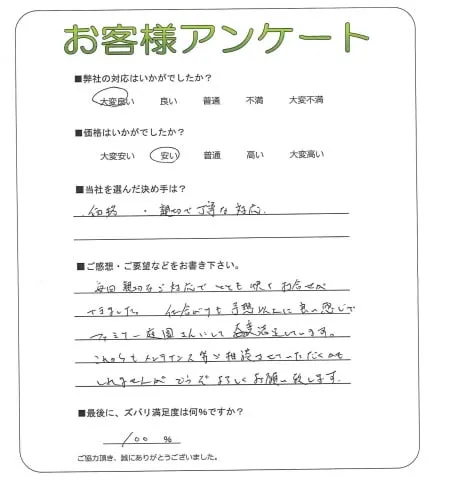 お客様アンケート
■弊社の対応はいかがでしたか？
大変良い 良い 普通 不満 大変不満
■価格はいかがでしたか？
大変安い 安い 普通 高い 大変高い
■当社を選んだ決め手は？
・価格 ・親切で丁寧な対応
■ご感想・ご要望などをお書き下さい。
毎日親切なご対応でとても よく お任せ
できました。仕上がりも予想以上に良い感じで
ファミリー庭園さんにして 満足しています。
これからもメンテナンス等ご相談させていただくかも
しれませんが どうぞよろしくお願い致します。
■最後に、ズバリ満足度は何%ですか？
100 %
ご協力頂き、誠にありがとうございました。